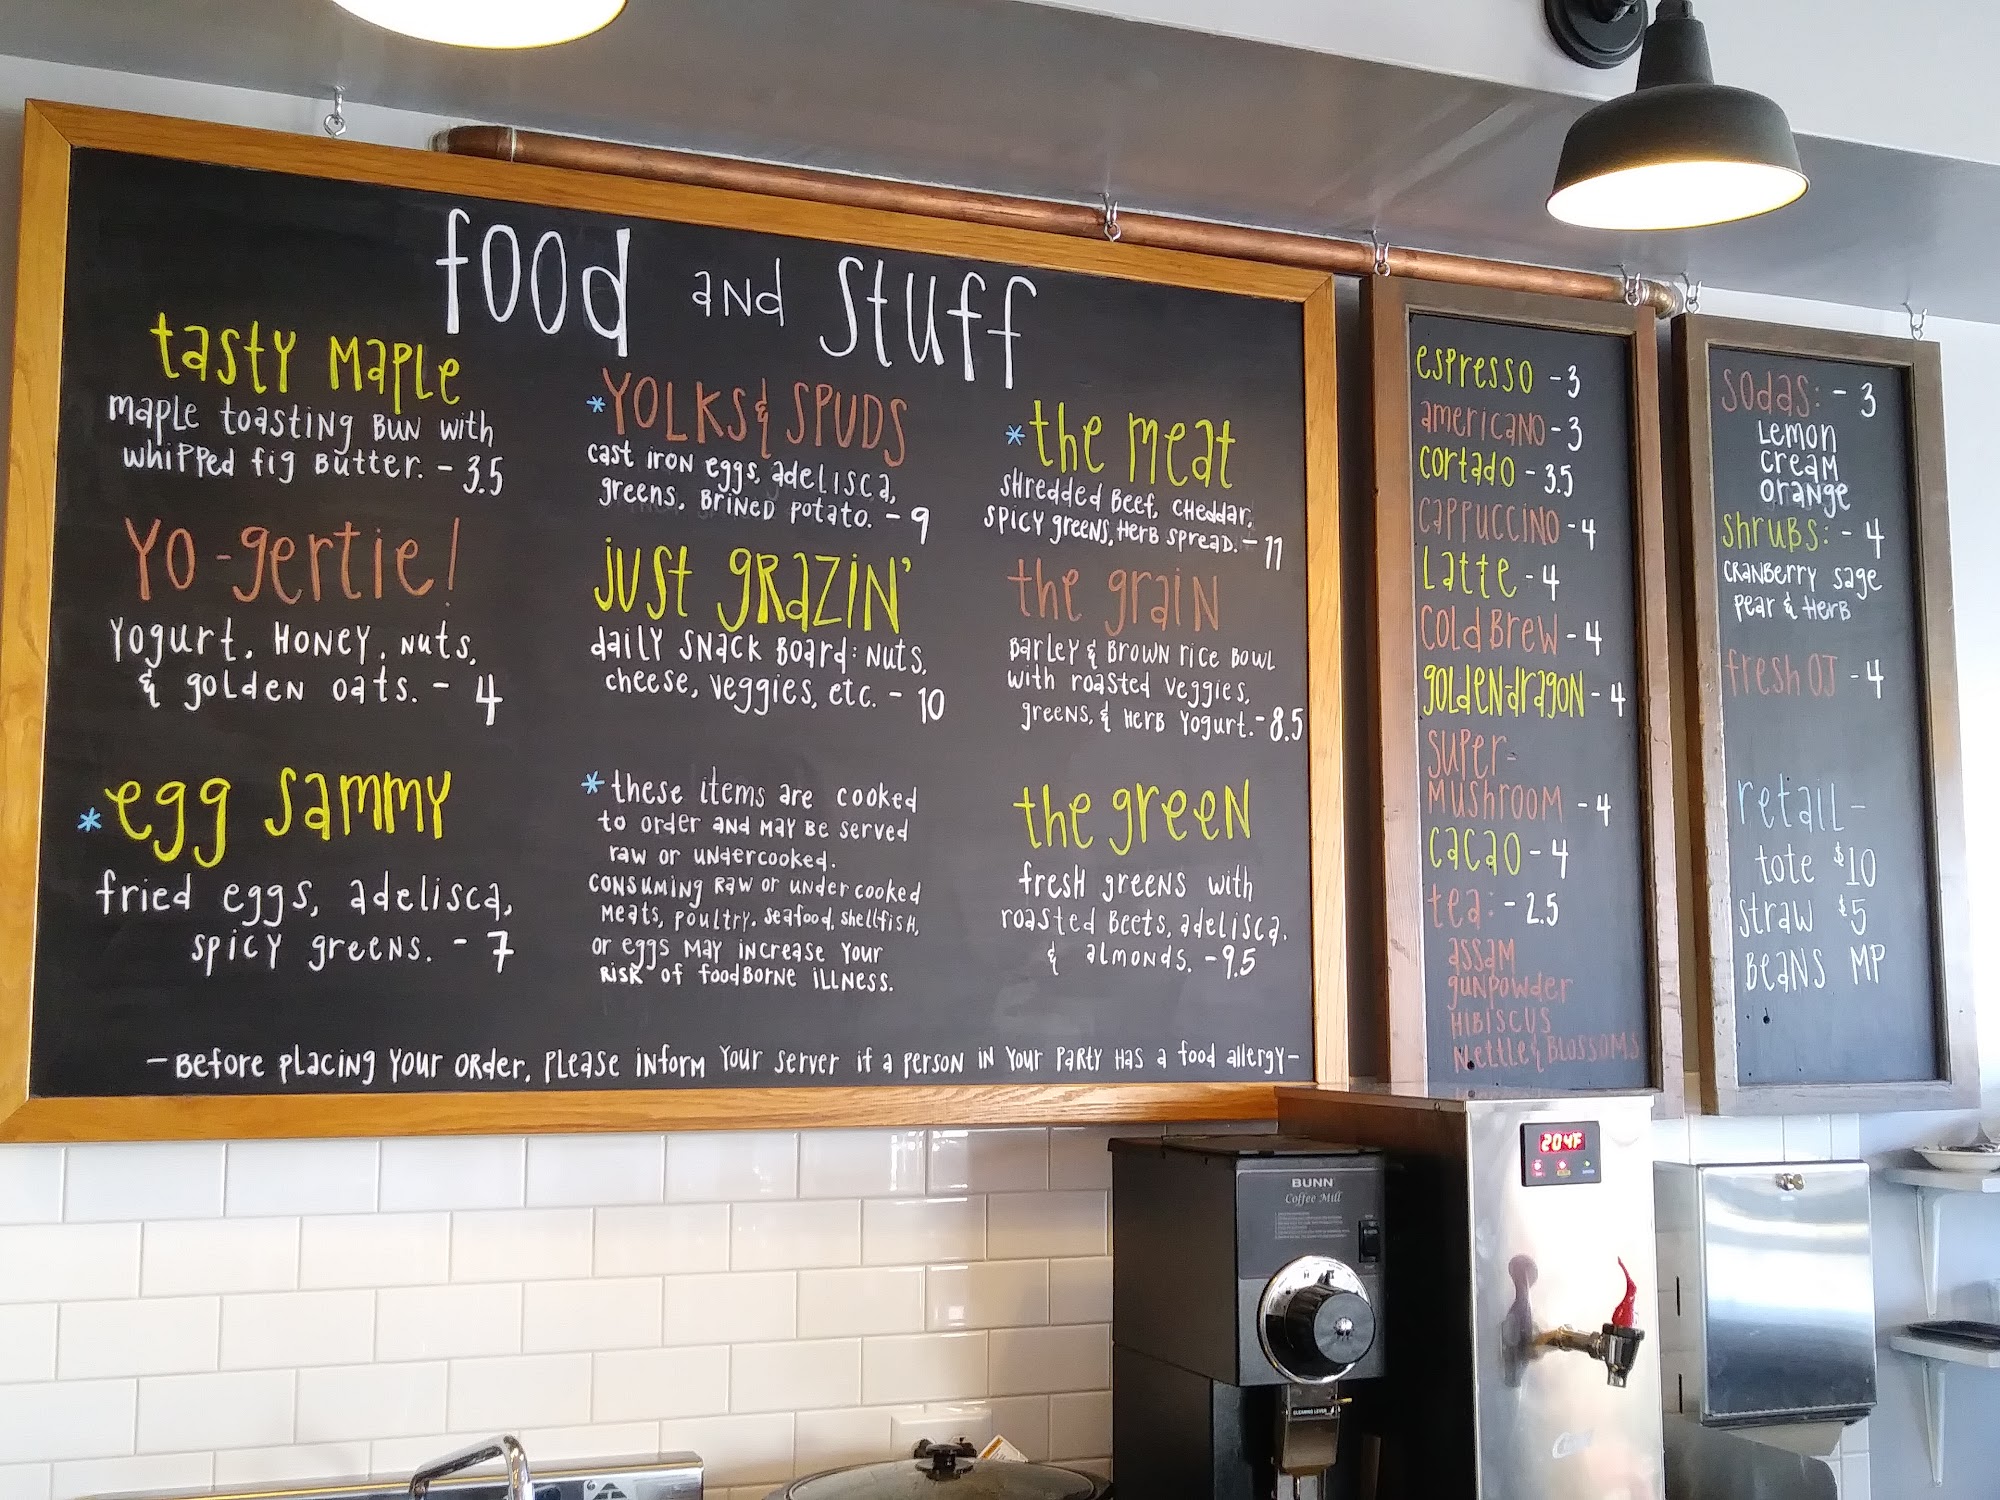 food and stuff
tasty maple
maple toasting bun with
whipped fig butter. - 3.5
yo-gertie!
yogurt, honey, nuts,
& golden oats. - 4
*egg sammy
fried eggs, adelisca,
spicy greens. - 7
*YOLKS & SPUDS
cast iron eggs, adelisca,
greens, brined potato. - 9
just grazin'
daily snack board: nuts,
cheese, veggies, etc. - 10
*these items are cooked
to order and may be served
raw or undercooked.
consuming raw or undercooked
meats, poultry, seafood, shellfish,
or eggs may increase your
risk of foodborne illness.
*the meat
shredded beef, cheddar,
spicy greens, herb spread. - 11
the grain
barley & brown rice bowl
with roasted veggies,
greens, & herb yogurt. - 8.5
the green
fresh greens with
roasted beets, adelisca,
& almonds. - 9.5
- before placing your order, please inform your server if a person in your party has a food allergy -
espresso - 3
americano - 3
cortado - 3.5
cappuccino - 4
latte - 4
cold brew - 4
golden-dragon - 4
super-
mushroom - 4
cacao - 4
tea: - 2.5
assam
gunpowder
hibiscus
nettle & blossoms
sodas: - 3
lemon
cream
orange
shrubs: - 4
cranberry sage
pear & herb
fresh OJ - 4
retail -
tote $10
straw $5
beans MP
BUNN
Coffee Mill
204F
CLEANING LEVER